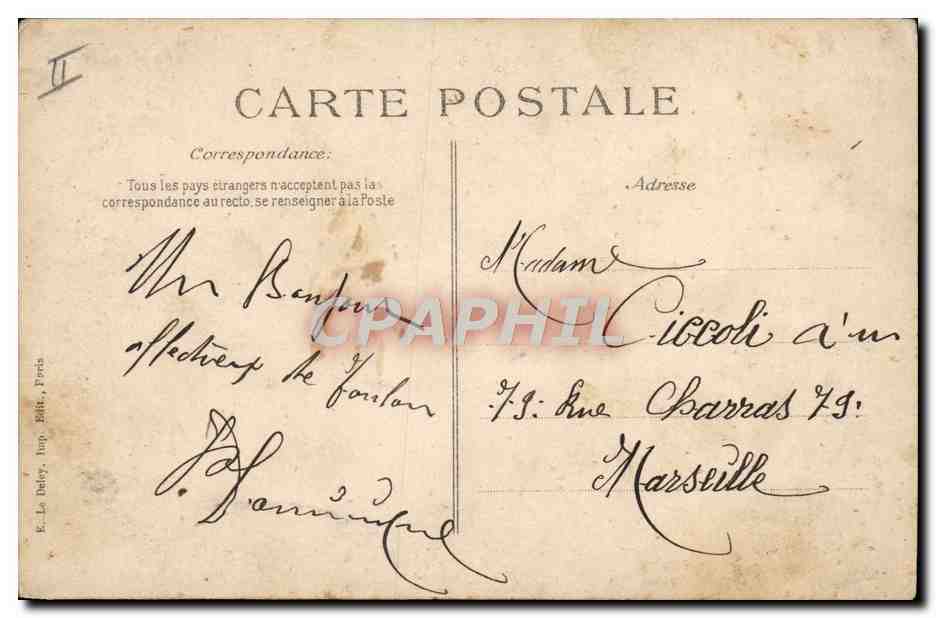 II
CARTE POSTALE
Correspondance:
Tous les pays étrangers n'acceptent pas la
correspondance au recto, se renseigner à la Poste
Adresse
Un Bonjour
affectueux de Toulon
Madame
Ciccoli
79. Rue Charras 79.
Marseille
E. Le Deley, Imp. Edit., Paris
CPAPHIL